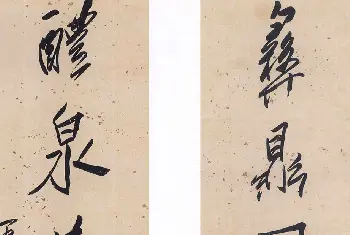 彝鼎
醴泉